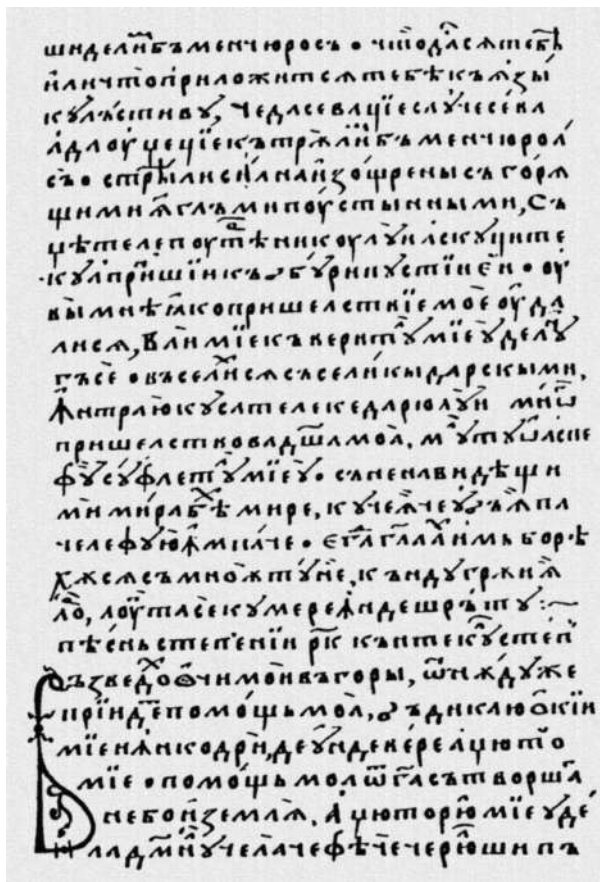 шиделимбъменчюросъ • чтⷪ҇дастсѧтебѣ
илиⷱ҇топриложитсѧтебѣкъѧзы
кꙋлъстивꙋ, чедасевацїеслꙋчесева
адаоуцецїекътрѫлимбъменчюроа
съ • стрѣлисилнаизощреныⷭ҇ъгорѧ
щимиѫглъмипоустынными, съ
цѣтелепоутѣникоулꙋиаскꙋците
кꙋаприншїикърбꙋрипꙋстїнѣи • оу
вымнѣꙗкопришелствїемоеоуда
лисѧ, ваимїекъверитꙋмїеꙋделꙋ
гъсе • въселихсѧсъселикыдарскыми,
ꙟтраюкꙋсателекедарюлꙋи мнѡ
пришелствовадш҃амоа, мꙋтꙋѡаспе
фꙋсꙋфлетꙋмїеꙋ • съненавидѣщи
мимирабѣхмире, кꙋчеѧчеꙋрѫпа
челефꙋюꙟпаче • егдаглаахимьборѣ
хѫсѧсъмноѫтꙋне, къндꙋгръиѧ
ло, лоутасекꙋмереꙟдешрътꙋ :~
пѣсньстепенїи рк кънтекꙋстепї
ъзведохочимоивъгоры, ѿнѫдꙋже
прїидепомощьмоа, ръдикаюокїи
мїеиꙟкодри, деꙋндевереацютѡ
мїе • помощьмоаѿгасътворша
небоиземлѧ, ацюторюмїеꙋде
ладмнꙋчелачефѣчечерюшипъ